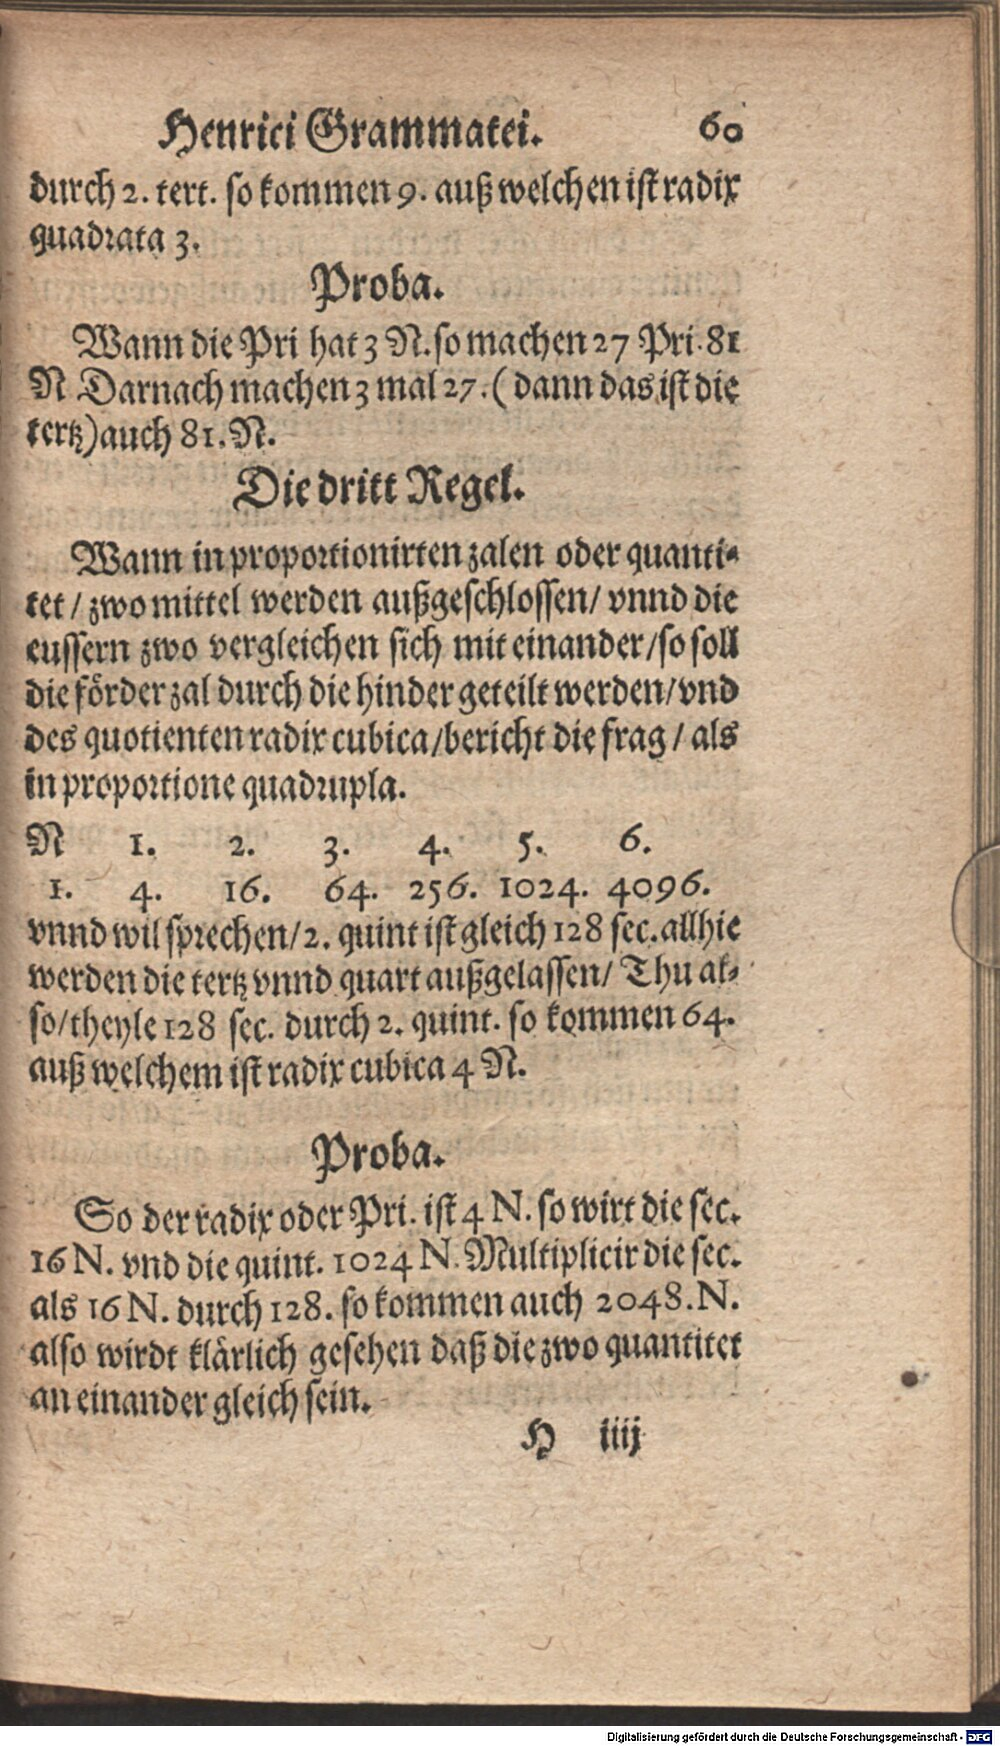 Henrici Grammatei. 60
durch 2. tert. so kommen 9. auß welchen ist radix
quadrata 3.
Proba.
Wann die Pri hat 3 N. so machen 27 Pri. 81
N Darnach machen 3 mal 27. (dann das ist die
tertz) auch 81. N.
Die dritt Regel.
Wann in proportionirten zalen oder quanti-
tet / zwo mittel werden außgeschlossen / vnnd die
eussern zwo vergleichen sich mit einander / so soll
die förder zal durch die hinder geteilt werden / vnd
des quotienten radix cubica / bericht die frag / als
in proportione quadrupla.
N 1. 2. 3. 4. 5. 6.
1. 4. 16. 64. 256. 1024. 4096.
vnnd wil sprechen / 2. quint ist gleich 128 sec. allhie
werden die tertz vnnd quart außgelassen / Thu al-
so / theyle 128 sec. durch 2. quint. so kommen 64.
auß welchem ist radix cubica 4 N.
Proba.
So der radix oder Pri. ist 4 N. so wirt die sec.
16 N. vnd die quint. 1024 N. Multiplicir die sec.
als 16 N. durch 128. so kommen auch 2048. N.
also wirdt klärlich gesehen daß die zwo quantitet
an einander gleich sein.
H iiij
Digitalisierung gefördert durch die Deutsche Forschungsgemeinschaft - DFG